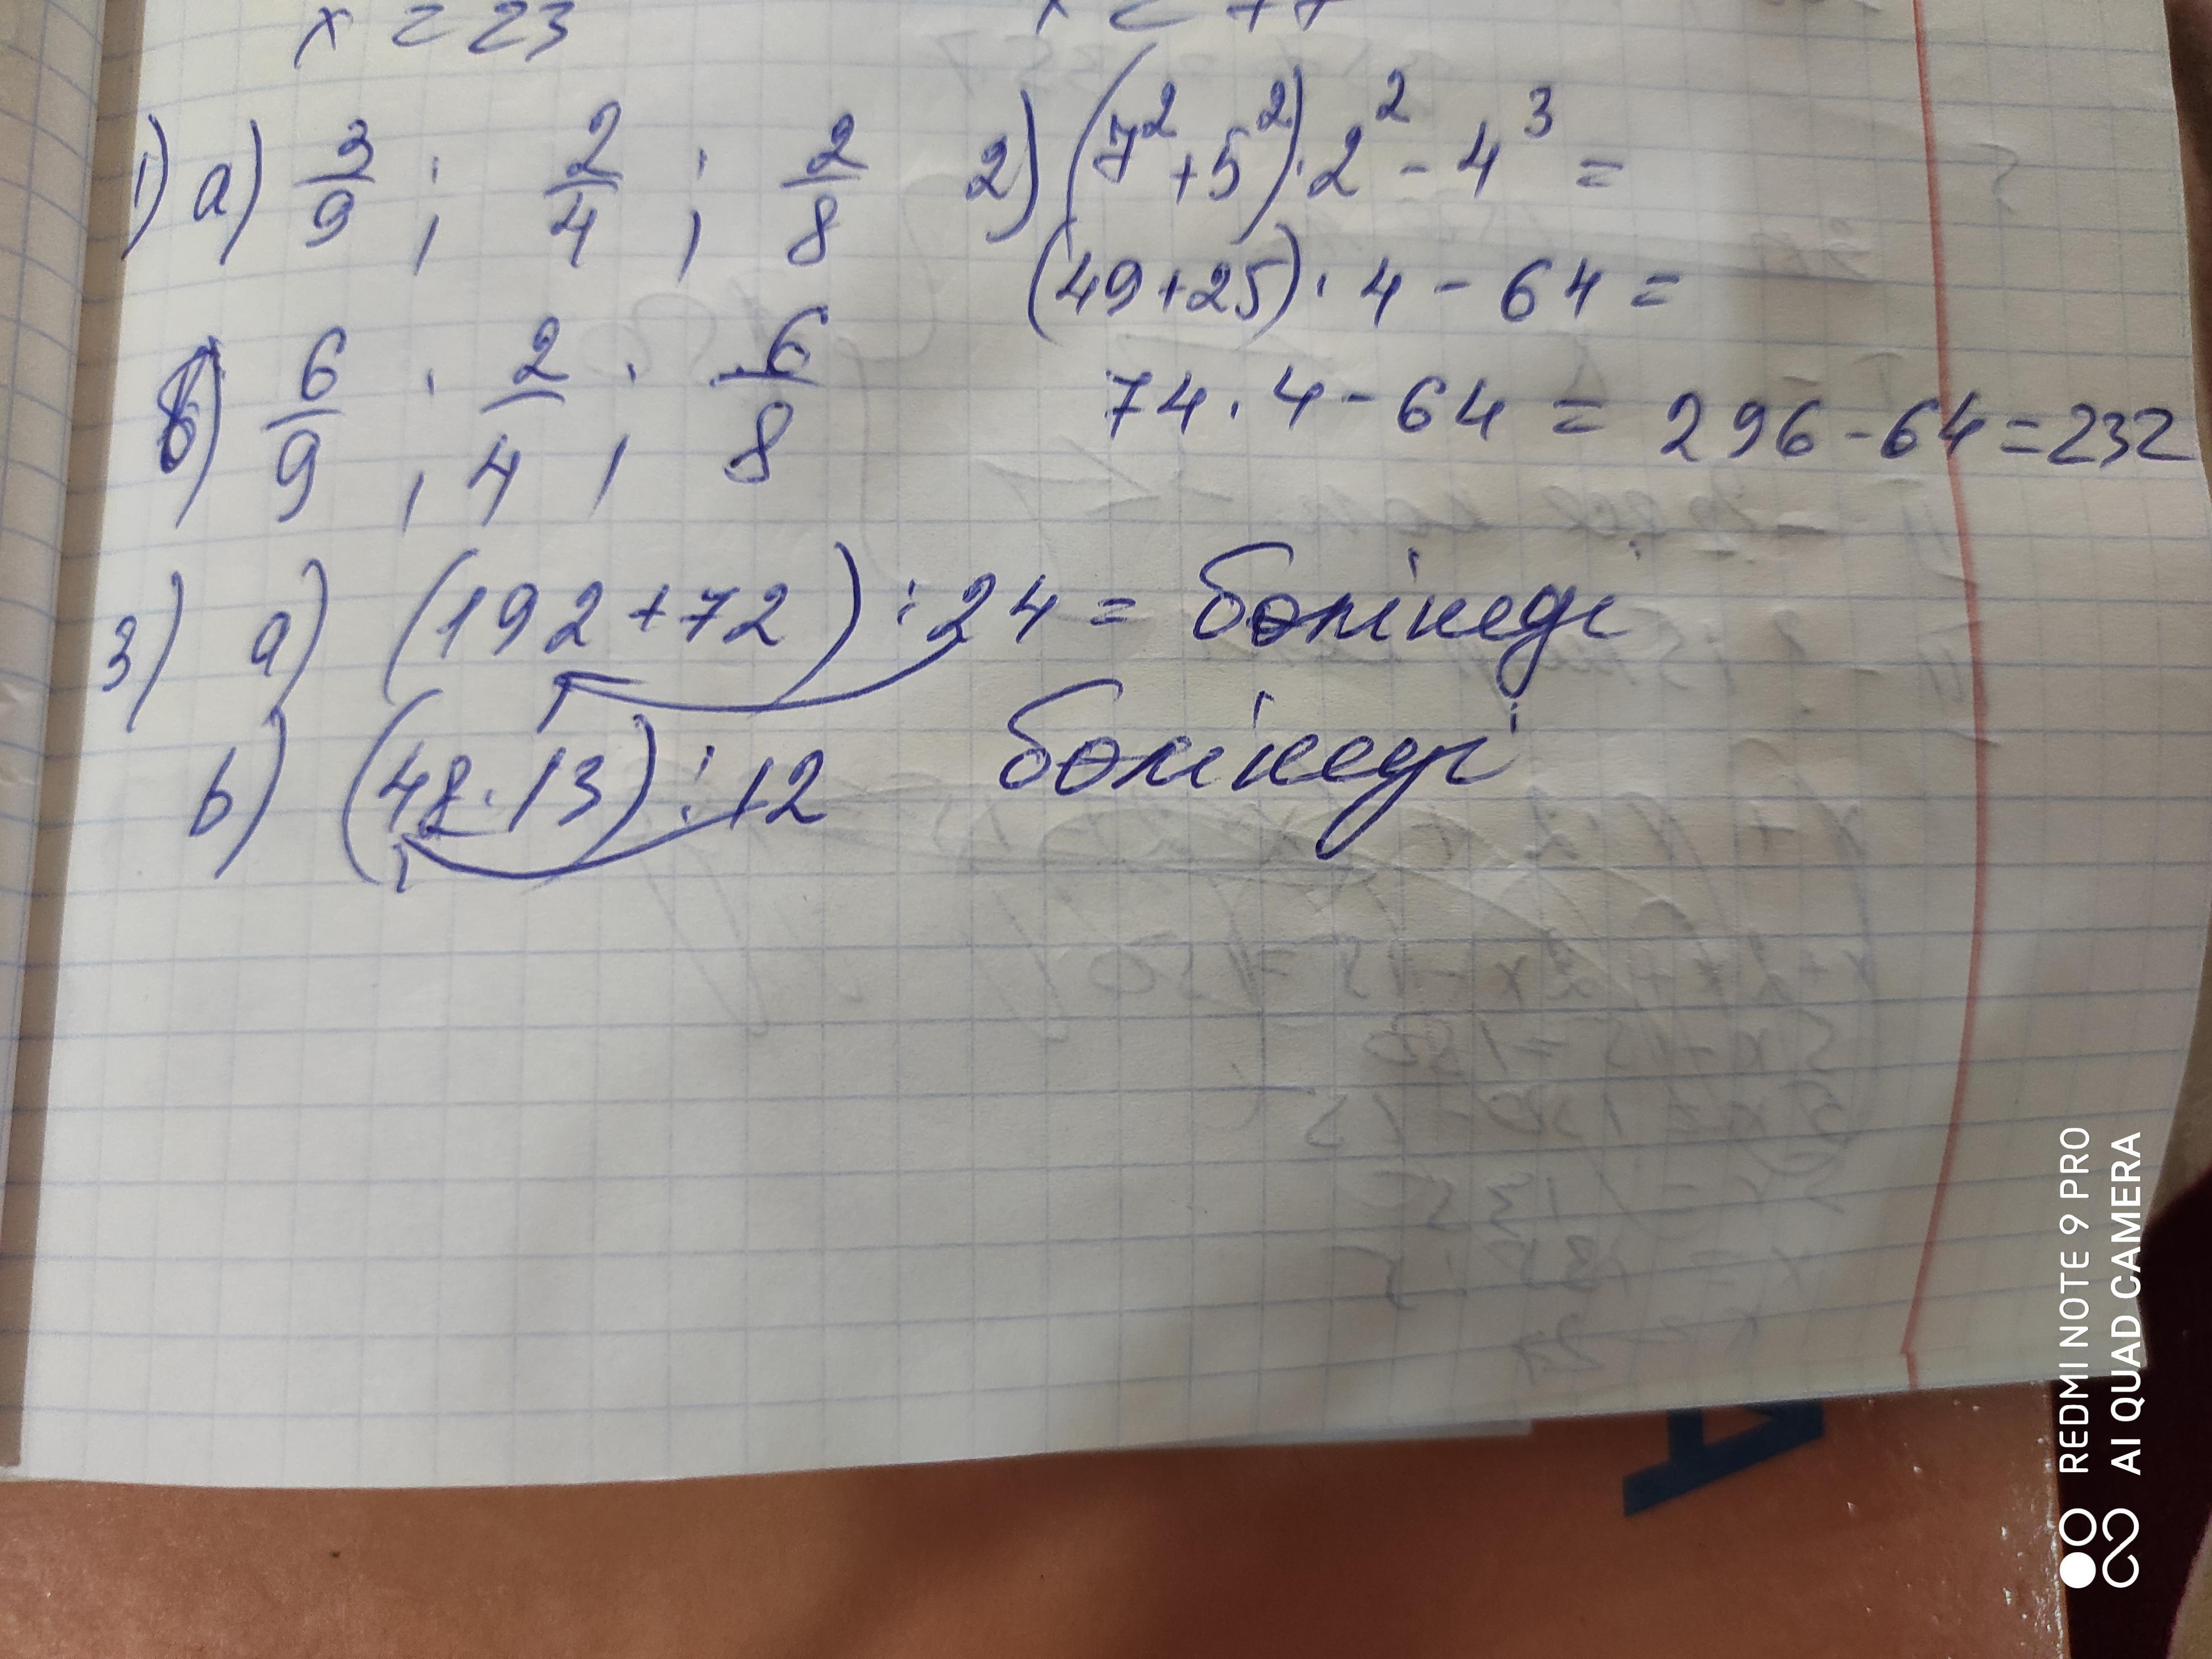 x = 23
x = 77
1) a) 3/9 ; 2/4 ; 2/8
b) 6/9 ; 2/4 ; 6/8
2) (7² + 5²) · 2² - 4³ =
(49+25) · 4 - 64 =
74 · 4 - 64 = 296 - 64 = 232
3) a) (192 + 72) : 24 = бөлінеді
b) (48 · 13) : 12 бөлінеді
REDMI NOTE 9 PRO
AI QUAD CAMERA